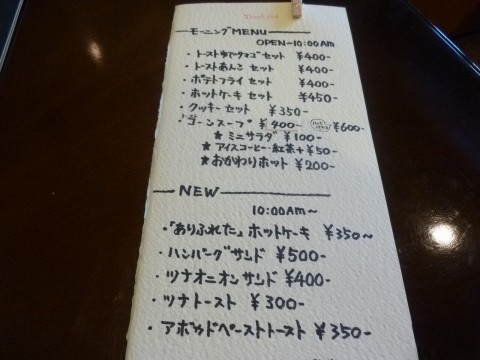 モーニングMENU
OPEN~10:00AM
・トーストゆでタマゴセット ¥400-
・トーストあんこ セット ¥400-
・ポテトフライ セット ¥400-
・ホットケーキ セット ¥450-
・クッキーセット ¥350-
・コーンスープ ¥400- ¥600-
★ミニサラダ ¥100-
★アイスコーヒー・紅茶+¥50-
★おかわりホット ¥200-
NEW
10:00AM~
・「ありふれた」ホットケーキ ¥350~
・ハンバーグサンド ¥500-
・ツナオニオンサンド ¥400-
・ツナトースト ¥300-
・アボカドペーストトースト ¥350-